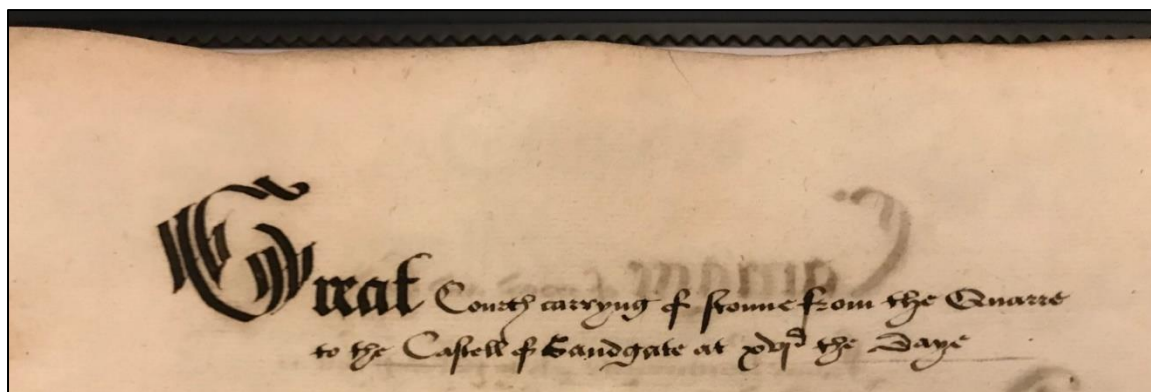 Great Courtes carryng of stonne from the Quarre
to the Castell of Sandgate at xvjd the Daye